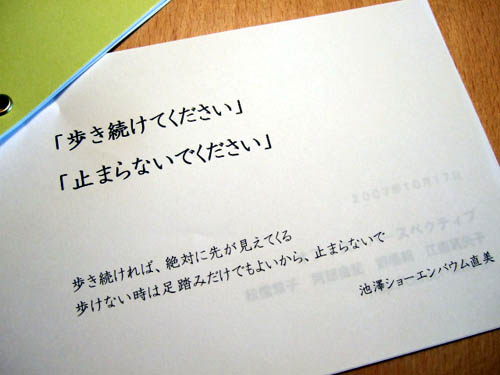 「歩き続けてください」
「止まらないでください」
2007年10月17日
スペクティブ
歩き続ければ、絶対に先が見えてくる
歩けない時は足踏みだけでもよいから、止まらないで
池澤ショーエンバウム直美